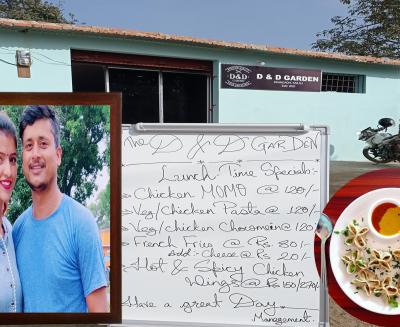 D&D
D & D GARDEN
The D & D GARDEN
Lunch Time Specials:-
Chicken MOMO @ 120/-
Veg/Chicken Pasta @ 120/-
Veg/chicken Chowmein @ 120/-
French Fries @ Rs. 80/-
Add: Cheese @ Rs 20/-
Hot & Spicy Chicken
Wings @ Rs 150/270/-
Have a great Day.
Management.